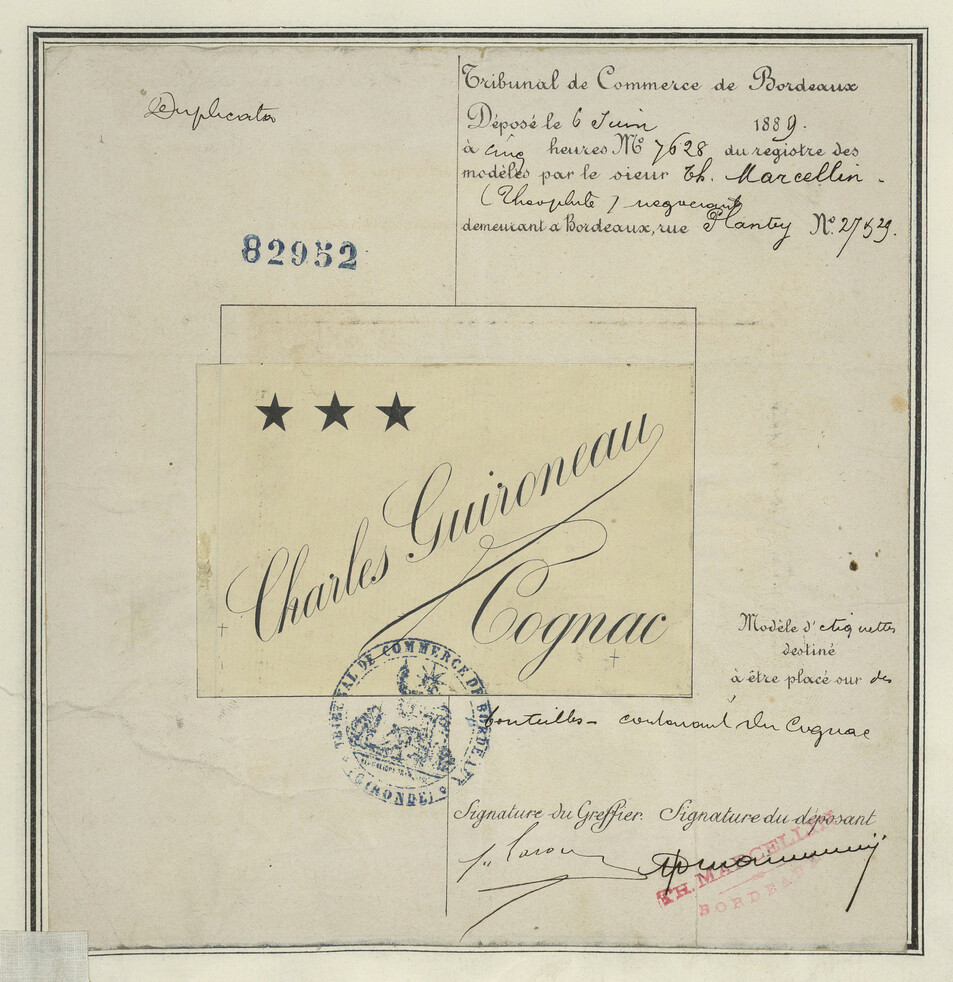 Duplicata
82952
Tribunal de Commerce de Bordeaux
Déposé le 6 Juin 1889.
à cinq heures No 7628 du registre des
modèles par le sieur Th. Marcellin.
(Théophile) négociant
demeurant à Bordeaux, rue Plantey No. 27 & 29.
★ ★ ★
Charles Guironeau
Cognac
Modèle d'étiquettes
destiné
à être placé sur des
bouteilles contenant du Cognac
TRIBUNAL DE COMMERCE DE BORDEAUX
(GIRONDE)
Signature du Greffier. Signature du déposant
TH. MARCELLIN
BORDEAUX